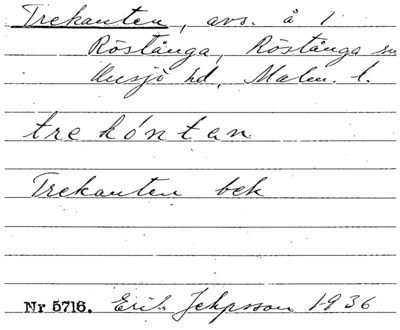 Trekanten, avs. å 1
Röstånga, Röstånga sn
Onsjö hd, Malm. l.
trekóntan
Trekanten bek
Nr 5716. Erik Jeppsson 1936